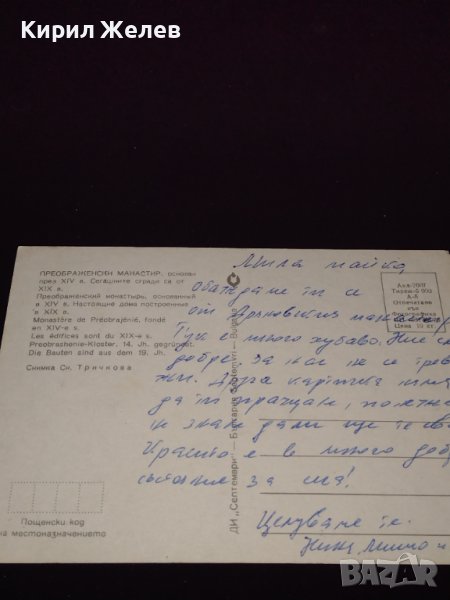 Кирил Желев
ПРЕОБРАЖЕНСКИ МАНАСТИР, основан
през XIV в. Сегашните сгради са от
XIX в.
Преображенский монастырь, основанный
в XIV в. Настоящие дома построенные
в XIX в.
Monastère de Préobrajénié, fondé
en XIV-e s.
Les édifices sont du XIX-e s.
Preobraschenie-Kloster, 14. Jh. gegründet.
Die Bauten sind aus dem 19. Jh.
Снимка Сн. Тричкова
Пощенски код
на местоназначението
ДИ „Септември" — България Septemvri — Bulgaria
Тираж 6 000
А-6
Отпечатано
във
Фотографика
Цена 10 кг.
Мила майка,
обаждаме ти се
от Дряновския
Тук е много хубаво. Ние сме
добре. За нас не се
жи. Друга картичка няма
да ти пращам,
не знам дали ще
Красито е в много
състояние за сега!
Целуваме те.
bazar